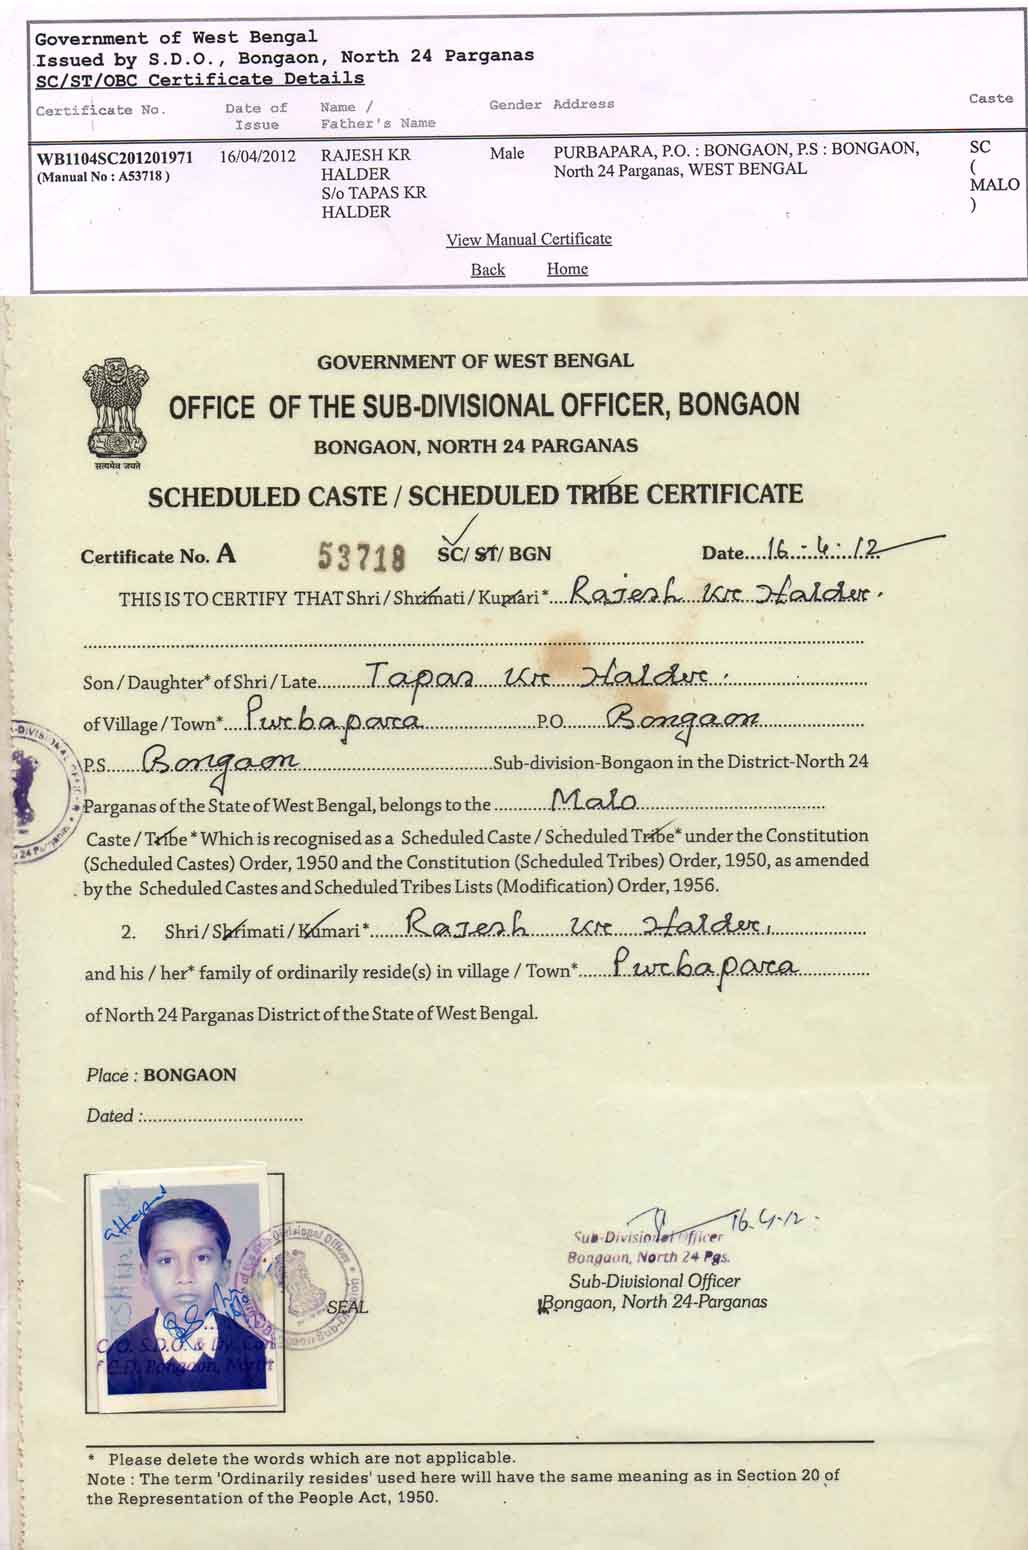 Government of West Bengal
Issued by S.D.O., Bongaon, North 24 Parganas
SC/ST/OBC Certificate Details
Certificate No. Date of Issue Name / Father's Name Gender Address Caste
WB1104SC201201971 16/04/2012 RAJESH KR Male PURBAPARA, P.O. : BONGAON, P.S : BONGAON, SC
(Manual No : A53718 ) HALDER North 24 Parganas, WEST BENGAL (
S/o TAPAS KR MALO
HALDER )
View Manual Certificate
Back Home
GOVERNMENT OF WEST BENGAL
OFFICE OF THE SUB-DIVISIONAL OFFICER, BONGAON
BONGAON, NORTH 24 PARGANAS
सत्यमेव जयते
SCHEDULED CASTE / SCHEDULED TRIBE CERTIFICATE
Certificate No. A 53718 SC/ ST/ BGN Date....16.4.12
THIS IS TO CERTIFY THAT Shri / Shrimati / Kumari*....Rajesh Kr Halder.
Son / Daughter* of Shri / Late........Tapas Kr Halder.
of Village / Town*...Purbapara............P.O.......Bongaon
P.S.......Bongaon............Sub-division-Bongaon in the District-North 24
Parganas of the State of West Bengal, belongs to the ............Malo
Caste / Tribe * Which is recognised as a Scheduled Caste / Scheduled Tribe* under the Constitution
(Scheduled Castes) Order, 1950 and the Constitution (Scheduled Tribes) Order, 1950, as amended
by the Scheduled Castes and Scheduled Tribes Lists (Modification) Order, 1956.
2. Shri / Shrimati / Kumari*.......Rajesh Kr Halder,
and his / her* family of ordinarily reside(s) in village / Town*......Purbapara
of North 24 Parganas District of the State of West Bengal.
Place : BONGAON
Dated :................................
16.4.12
Sub-Divisional Officer
Bongaon, North 24 Pgs.
Sub-Divisional Officer
SEAL
Bongaon, North 24-Parganas
* Please delete the words which are not applicable.
Note : The term 'Ordinarily resides' used here will have the same meaning as in Section 20 of
the Representation of the People Act, 1950.